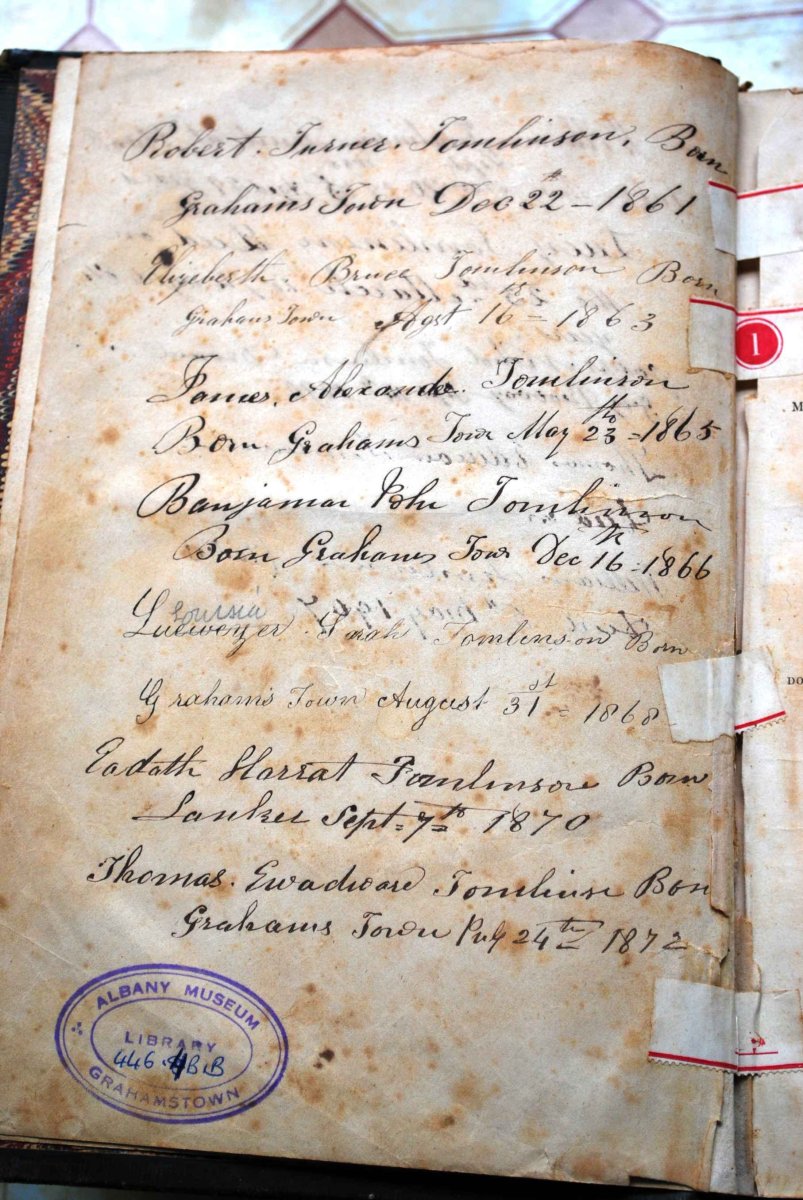 Robert. Turner. Tomlinson, Born
Grahams Town Dec 22 th – 1861
Elizeberth. Bruce Tomlinson Born
Grahams Town Agst 16 th = 1863
James, Alexander Tomlinson
Born Grahams Town May 23 th = 1865
Banjaman John Tomlinson
Born Grahams Town Dec 16 th = 1866
Louisia
Sarah Tomlinson Born
Grahams Town August 31 st = 1868
Eadath Harrat Tomlinson Born
Sept = 7 th 1870
Thomas. Ewadward Tomlinsn Bon
Grahams Town 24 th 1872
ALBANY MUSEUM
LIBRARY
446.
GRAHAMSTOWN
1
M
DO